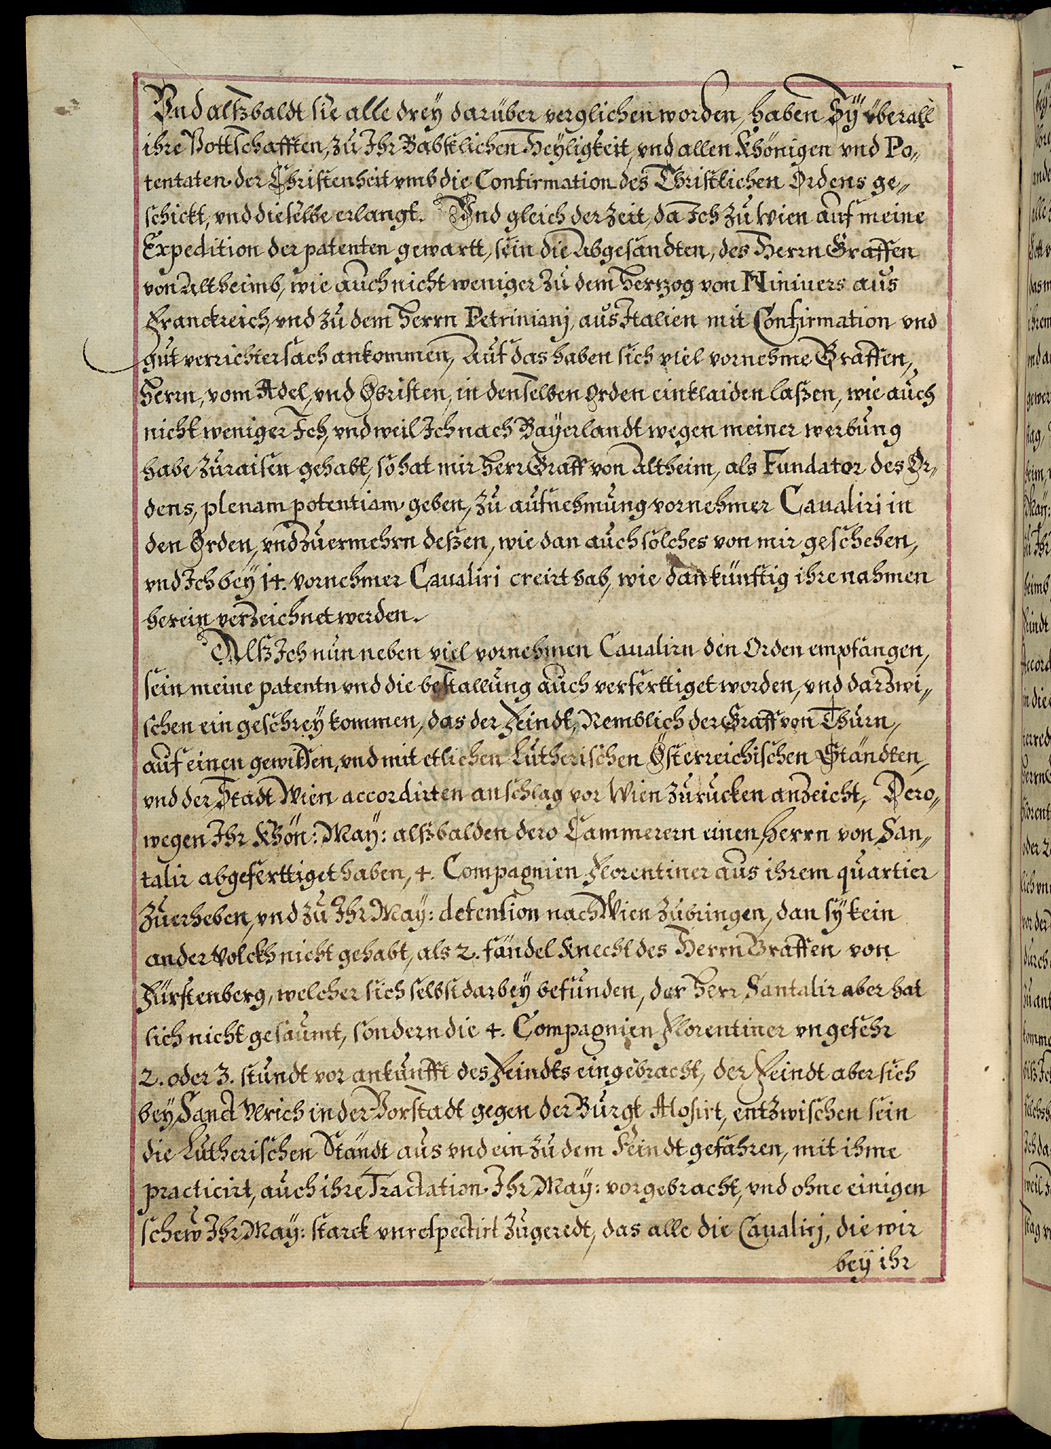 Vnd alßbaldt sie alle dreÿ darüber verglichen worden, haben Sÿ überall
ihre Pottschafften, zu Ihr Babstlichen Heÿligkeit, vnd allen Khönigen vnd Po„
tentaten der Christenheit vmb die Confirmation des Christlichen Ordens ge„
schickt, vnd dieselbe erlangt. Vnd gleich der Zeit, da Ich zu Wien auf meine
Expedition der patenten gewartt, sein die Abgesandten, des Herrn Graffen
von Altheimb, wie auch nicht weniger zu dem Hertzog von Niniuers aus
Franckreich, vnd zu dem Herrn Petrinianj, aus Italien mit Confirmation vnd
gut verrichter sach ankommen, Auf das haben sich viel vornehme Graffen,
Herrn, vom Adel, vnd Obristen, in denselben Orden einklaiden laßen, wie auch
nicht weniger Ich, vnd weil Ich nach Baÿerlandt wegen meiner werbung
habe zuraisen gehabt, so hat mir Herr Graff von Altheim, als Fundator des Or„
dens, plenam potentiam geben, zu aufnehmung vornehmer Caualiri in
den Orden, vnd zuermehrn deßen, wie dan auch solches von mir geschehen,
vnd Ich beÿ 14. vornehmer Caualiri creirt hab, wie dan künftig ihre nahmen
herein verzeichnet werden.
Alß Ich nun neben viel vornehmen Caualirn den Orden empfangen,
sein meine patentn vnd die bestallung auch verferttiget worden, vnd darzwi„
schen ein geschreÿ kommen, das der Feindt, Nemblich der Graff von Thurn,
auf einen gewissen, vnd mit etlichen Lutherischen Österreichischen Ständten,
vnd der Stadt Wien accordirten anschlag vor Wien zurucken anzeicht, Dero„
wegen Ihr Khön: Maÿ: alßbalden dero Cammerern einen Herrn von San„
talir abgeferttiget haben, 4. Compagnien Florentiner aus ihrem quartier
zuerheben, vnd zu Ihr Maÿ: defension nach Wien zubringen, dan sÿ kein
ander volckh nicht gehabt, als 2. fändel Knecht des Herrn Graffen von
Fürstenberg, welcher sich selbst darbeÿ befunden, der Herr Santalir aber hat
sich nicht gesaumt, sondern die 4. Compagnien Florentiner vngefehr
2. oder 3. stundt vor ankunfft des Feindts eingebracht, der Feindt aber sich
beÿ Sanct Vlrich in der Vorstadt gegen der Burgt Alosirt, entzwischen sein
die Lutherischen Ständt aus vnd ein zu dem Feindt gefahren, mit ihme
practicirt, auch ihre Tractation Ihr Maÿ: vorgebracht, vnd ohne einigen
schew Ihr Maÿ: starck vnrespectirt zugeredt, das alle die Caualirj, die wir
beÿ ihr